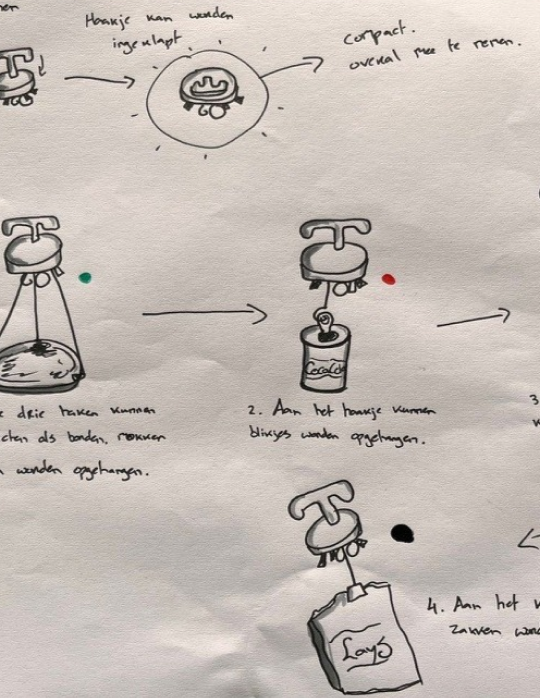 Haakje kan worden
ingeklapt
compact.
overal mee te nemen.
drie haken kunnen
als borden, rokken
worden opgehangen.
CocaCola
2. Aan het haakje kunnen
blikjes worden opgehangen.
3
4. Aan het
zakken
Lay's